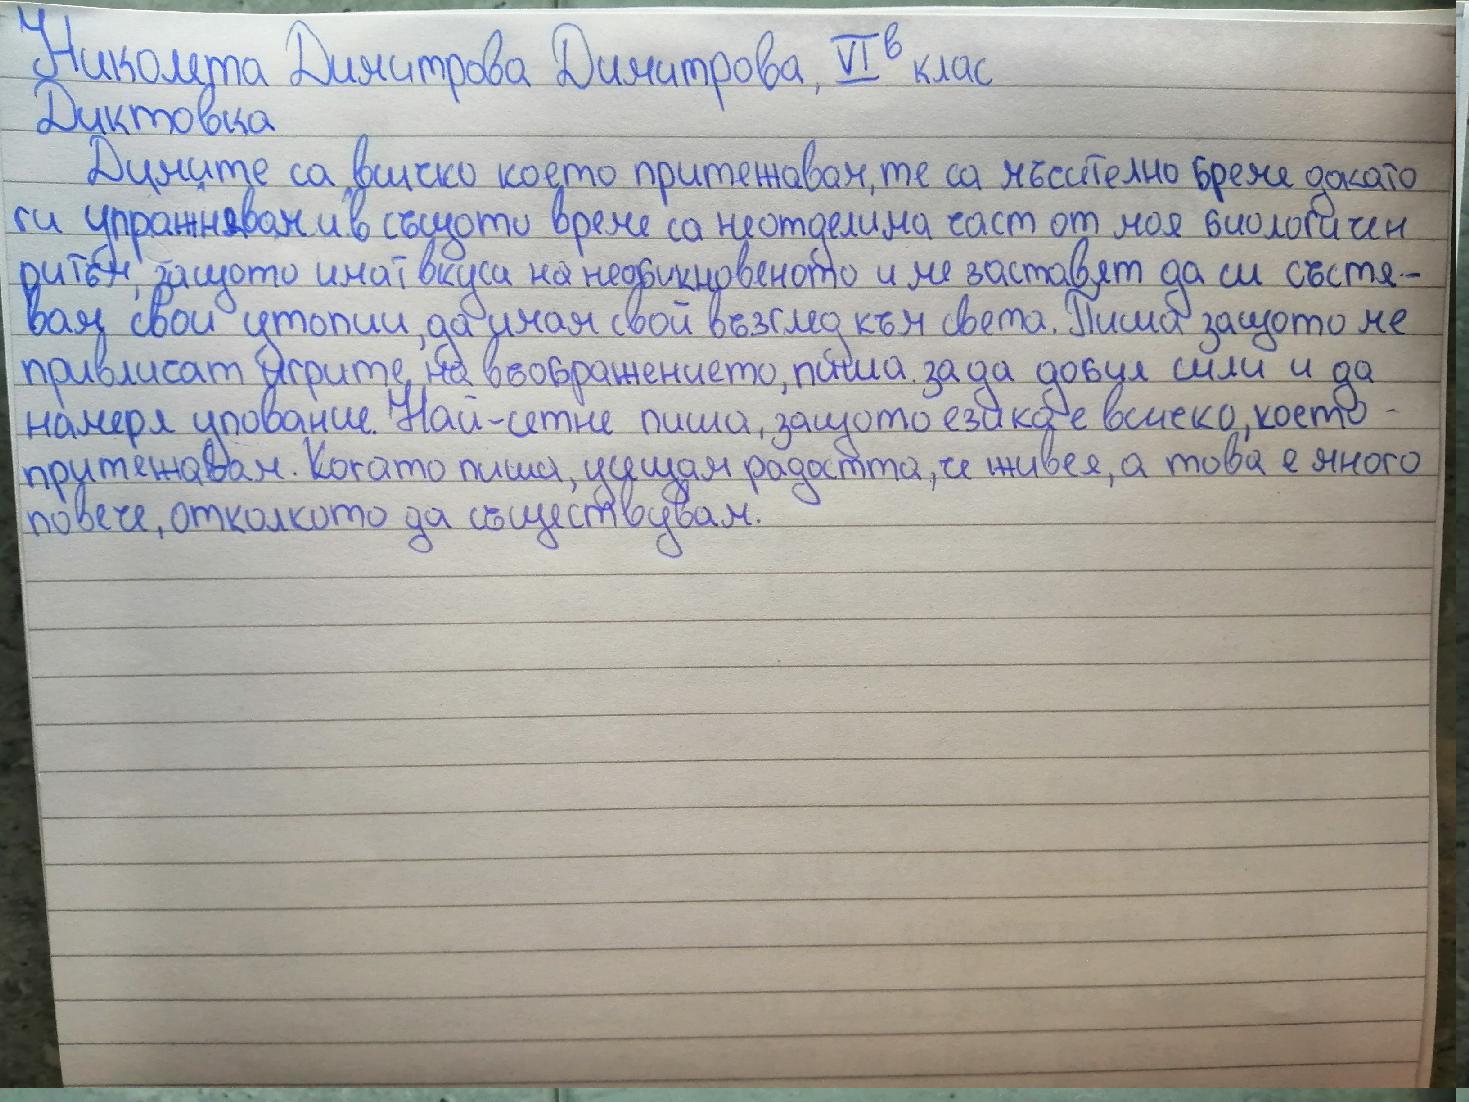 Николета Димитрова Димитрова, VIв клас
Диктовка
Думите са всичко което притежавам, те са мъчително бреме докато
ги упражнявам и в същото време са неотделима част от моя биологичен
ритъм, защото имат вкуса на необикновеното и ме заставят да си състя-
вам свои утопии, да имам свой възглед към света. Пиша защото ме
привличат игрите на въображението, пиша за да добия сили и да
намеря упование. Най-сетне пиша, защото езика е всичко, което
притежавам. Когато пиша, усещам радостта, че живея, а това е много
повече, отколкото да съществувам.